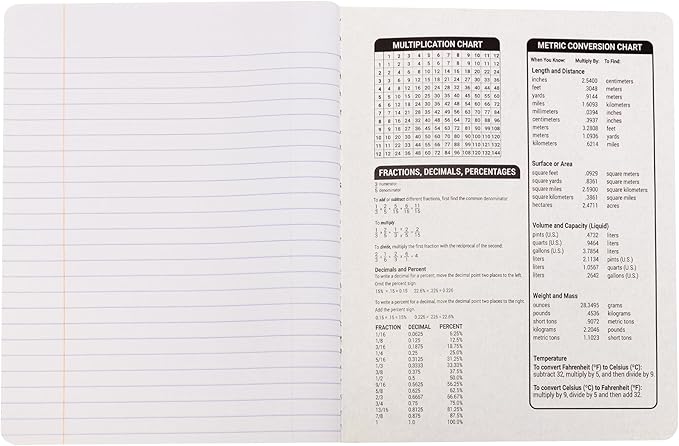 MULTIPLICATION CHART
1 2 3 4 5 6 7 8 9 10 11 12
1 1 2 3 4 5 6 7 8 9 10 11 12
2 2 4 6 8 10 12 14 16 18 20 22 24
3 3 6 9 12 15 18 21 24 27 30 33 36
4 4 8 12 16 20 24 28 32 36 40 44 48
5 5 10 15 20 25 30 35 40 45 50 55 60
6 6 12 18 24 30 36 42 48 54 60 66 72
7 7 14 21 28 35 42 49 56 63 70 77 84
8 8 16 24 32 40 48 56 64 72 80 88 96
9 9 18 27 36 45 54 63 72 81 90 99 108
10 10 20 30 40 50 60 70 80 90 100 110 120
11 11 22 33 44 55 66 77 88 99 110 121 132
12 12 24 36 48 60 72 84 96 108 120 132 144
FRACTIONS, DECIMALS, PERCENTAGES
3 numerator
5 denominator
To add or subtract different fractions, first find the common denominator.
1/3 + 2/5 = 5/15 + 6/15 = 11/15
To multiply
To divide, multiply the first fraction with the reciprocal of the second.
Decimals and Percent
To write a decimal for a percent, move the decimal point two places to the left.
Omit the percent sign.
15% = .15 = 0.15 22.6% = .226 = 0.226
To write a percent for a decimal, move the decimal point two places to the right.
Add the percent sign.
0.15 = .15 = 15% 0.226 = 226 = 22.6%
FRACTION DECIMAL PERCENT
1/16 0.0625 6.25%
1/8 0.125 12.5%
3/16 0.1875 18.75%
1/4 0.25 25.0%
5/16 0.3125 31.25%
1/3 0.3333 33.33%
3/8 0.375 37.5%
1/2 0.5 50.0%
9/16 0.5625 56.25%
5/8 0.625 62.5%
2/3 0.6667 66.67%
3/4 0.75 75.0%
13/16 0.8125 81.25%
7/8 0.875 87.5%
1 1.0 100.0%
METRIC CONVERSION CHART
When You Know: Multiply By: To Find:
Length and Distance
inches 2.5400 centimeters
feet .3048 meters
yards .9144 meters
miles 1.6093 kilometers
millimeters .0394 inches
centimeters .3937 inches
meters 3.2808 feet
meters 1.0936 yards
kilometers .6214 miles
Surface or Area
square feet .0929 square meters
square yards .8361 square meters
square miles 2.5900 square kilometers
square kilometers .3861 square miles
hectares 2.4711 acres
Volume and Capacity (Liquid)
pints (U.S.) .4732 liters
quarts (U.S.) .9464 liters
gallons (U.S.) 3.7854 liters
liters 2.1134 pints (U.S.)
liters 1.0567 quarts (U.S.)
liters .2642 gallons (U.S.)
Weight and Mass
ounces 28.3495 grams
pounds .4536 kilograms
short tons .9072 metric tons
kilograms 2.2046 pounds
metric tons 1.1023 short tons
Temperature
To convert Fahrenheit (°F) to Celsius (°C):
subtract 32, multiply by 5, and then divide by 9.
To convert Celsius (°C) to Fahrenheit (°F):
multiply by 9, divide by 5 and then add 32.